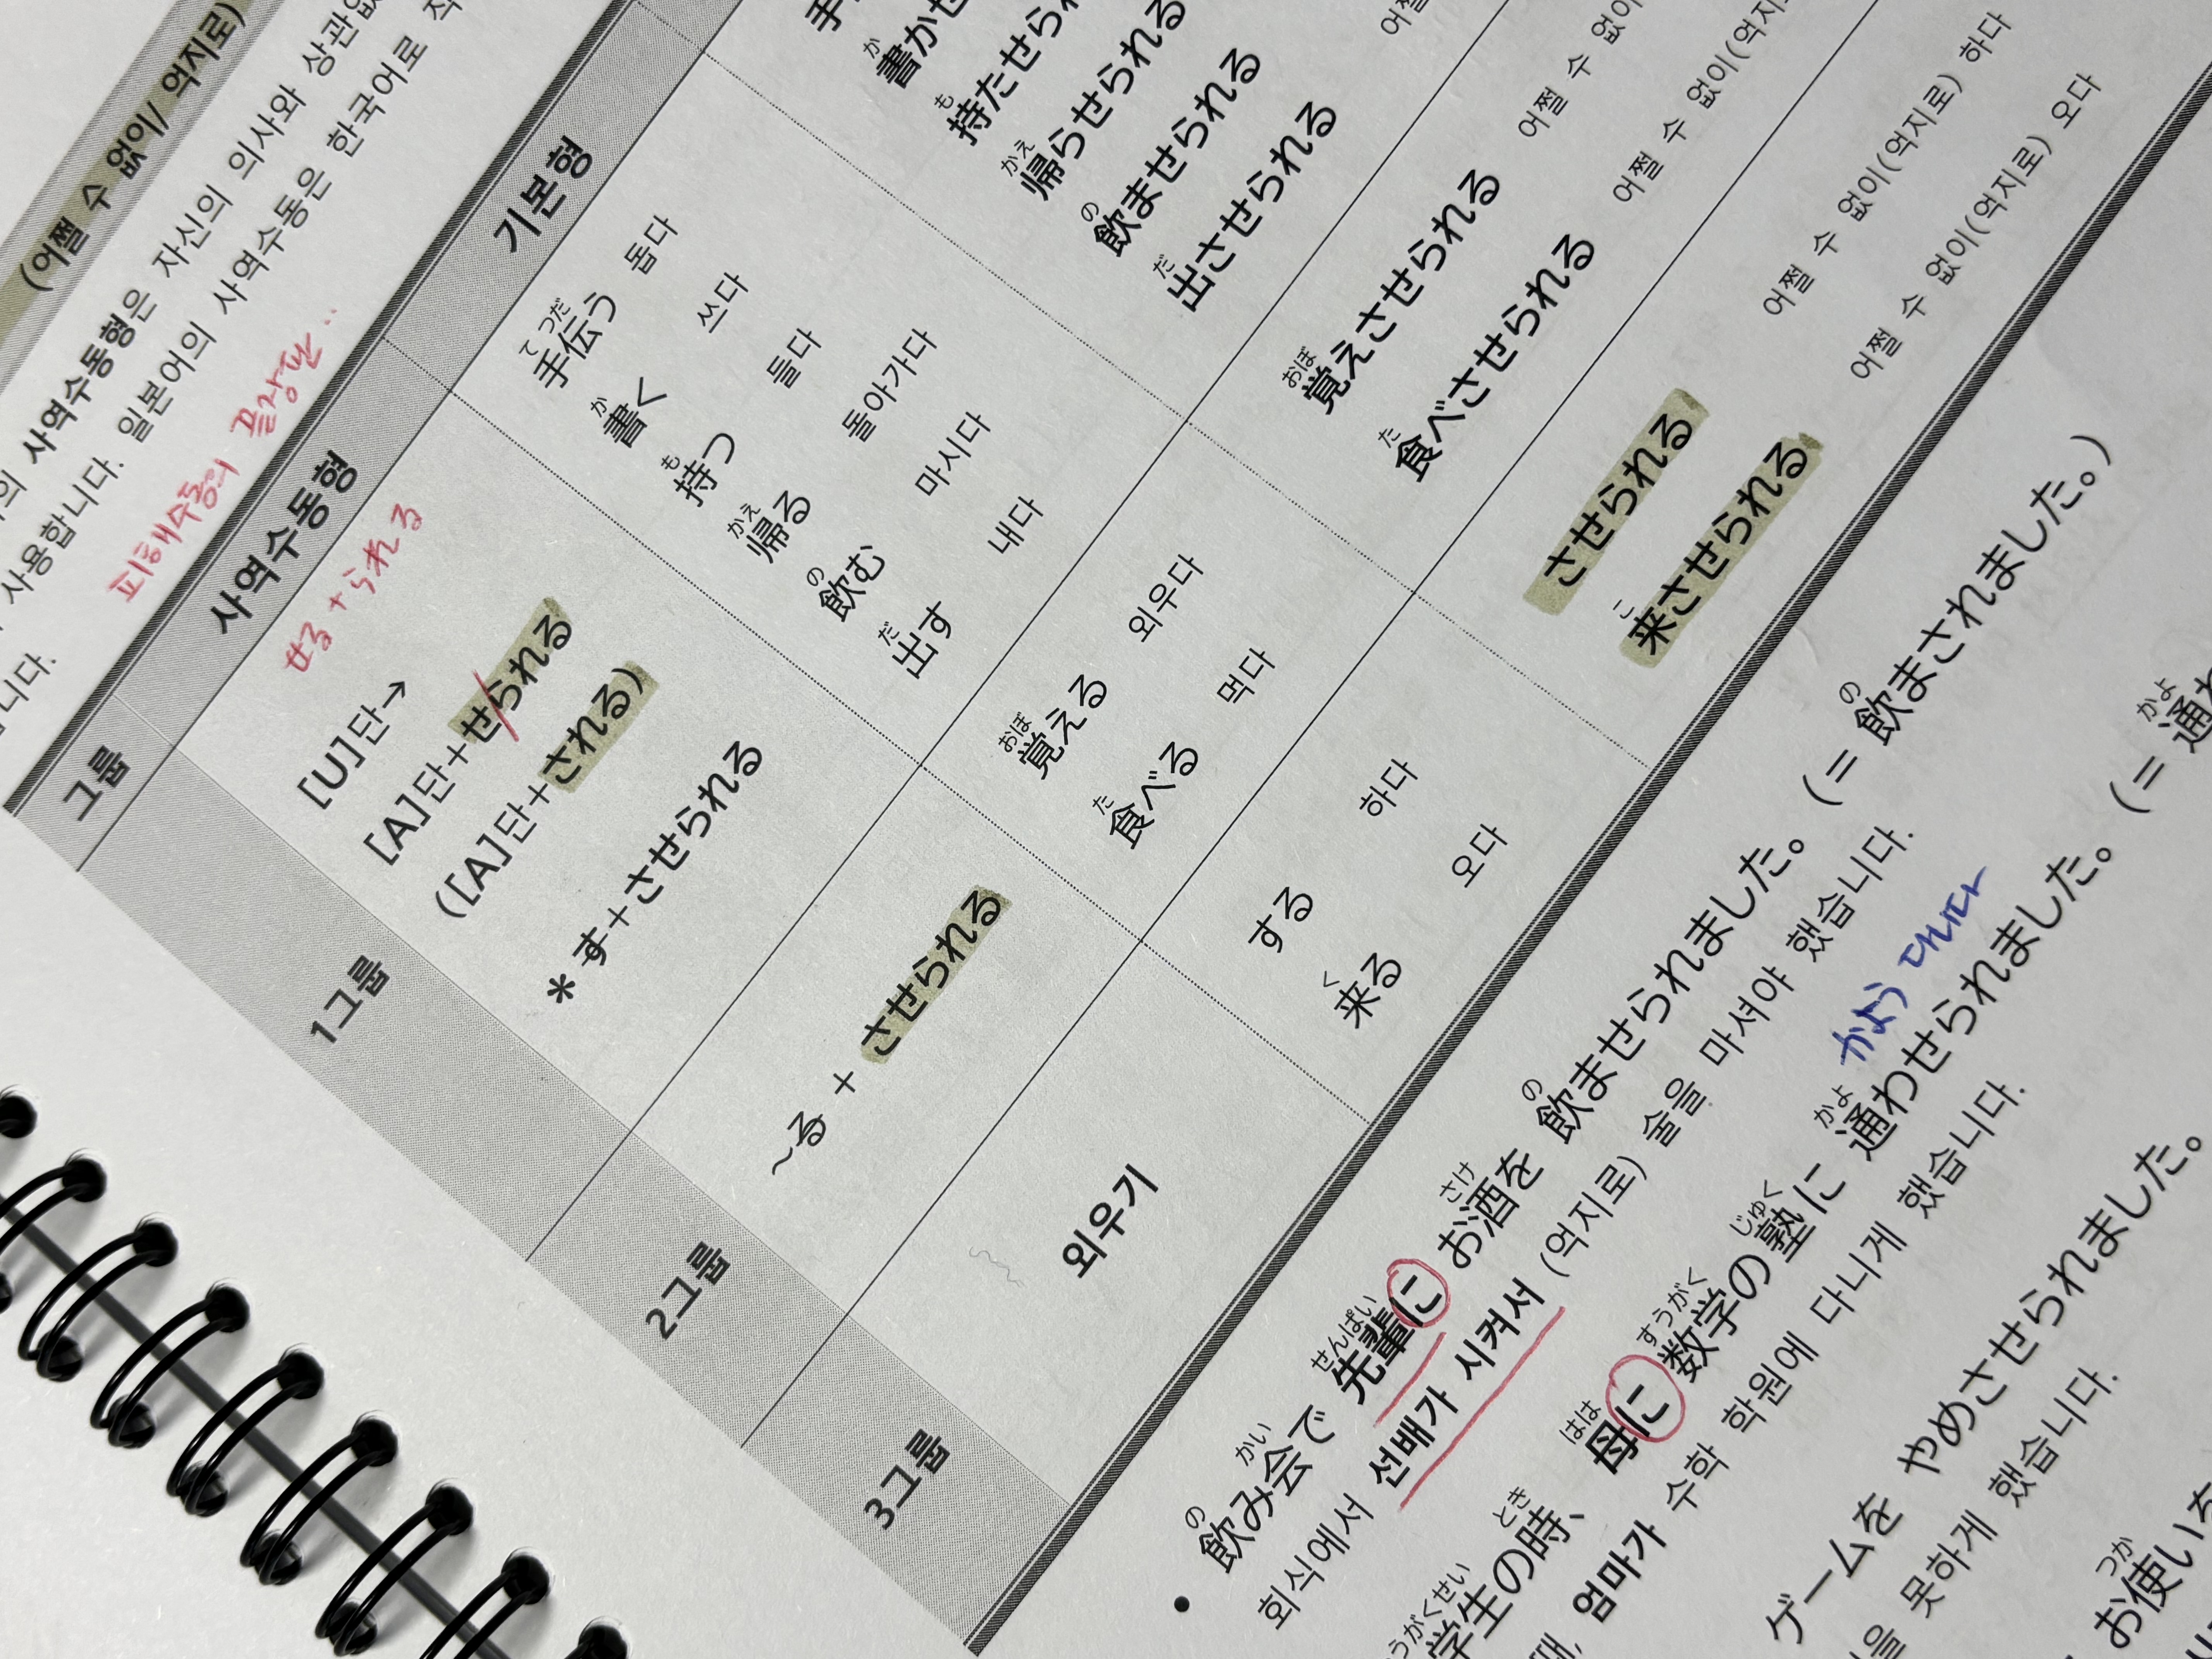 (어쩔 수 없이/ 억지로)
사역수동형은 자신의 의사와
사용합니다. 일본어의 사역수동은 한국어로
피해수동의 끝장판..
그룹 사역수동형 기본형
せる + られる
1그룹
[U]단→
[A]단+せられる
([A]단+される)
* す+させられる
手伝う 돕다
書く 쓰다
持つ 들다
帰る 돌아가다
飲む 마시다
出す 내다
持たせられ
帰らせられる
飲ませられる
出させられる
2그룹
~る + させられる
覚える 외우다
食べる 먹다
覚えさせられる 어쩔 수
食べさせられる 어쩔 수 없이(억지
3그룹
외우기
する 하다
来る 오다
させられる 어쩔 수 없이(억지로) 하다
来させられる 어쩔 수 없이(억지로) 오다
• 飲み会で 先輩に お酒を 飲ませられました。(= 飲まされました。)
회식에서 선배가 시켜서 (억지로) 술을 마셔야 했습니다.
かよう 다니다
学生の時、母に 数学の塾に 通わせられました。(= 通
때, 엄마가 수학 학원에 다니게 했습니다.
ゲームを やめさせられました。
을 못하게 했습니다.
お使いを